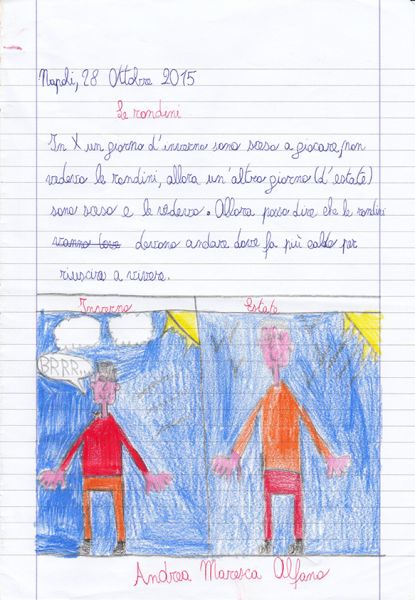 Napoli, 28 Ottobre 2015
Le rondini
In X un giorno d'inverno sono sceso a giocare, non
vedevo le rondini, allora un'altro giorno (d'estate)
sono sceso e le vedevo. Allora posso dire che le rondini
vanno dove devono andare dove fa più caldo per
riuscire a vivere.
Inverno Estate
BRRR...
Andrea Maresca Alfano